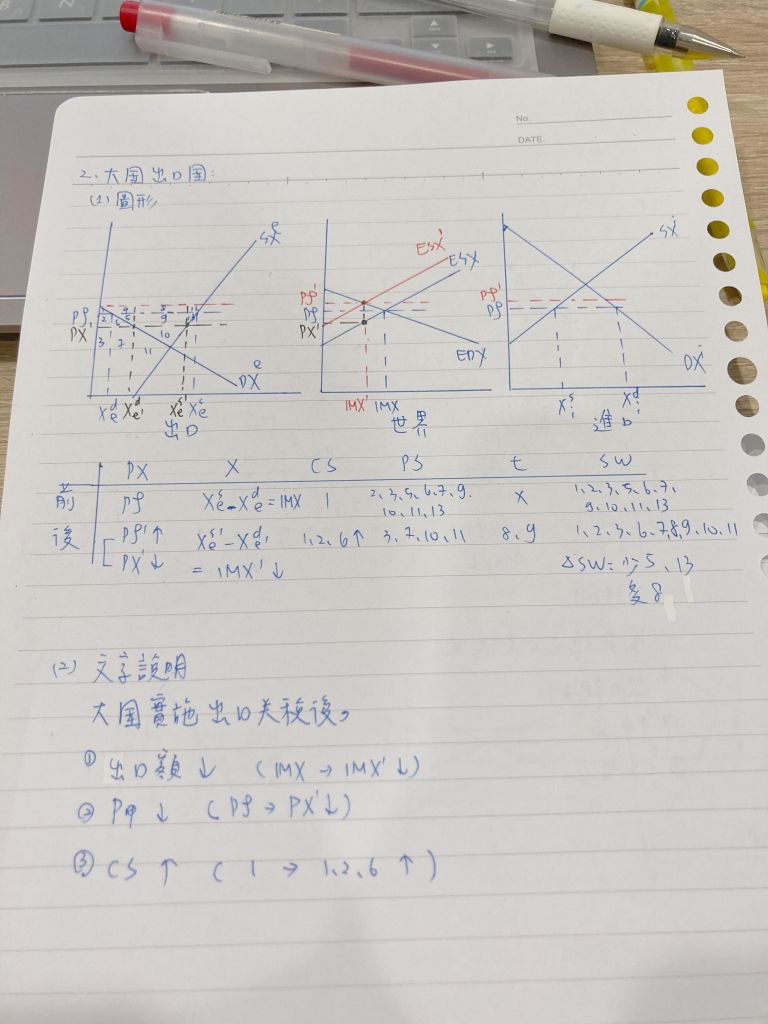 No.
DATE
2、大国出口国:
(1) 圖形
SXe
Pf
PX'
3 7 10 11
DXe
Xe^d Xe^d' Xe^s' Xe^s
出口
ESX'
ESX
Pf'
Pf
PX'
EDX
IMX' IMX
世界
SXi
Pf'
Pf
DXi
Xi^s Xi^d
進口
PX X CS PS t SW
前 Pf Xe^s - Xe^d = IMX 1 2、3、5、6、7、9、10、11、13 X 1、2、3、5、6、7、9、10、11、13
後 Pf'↑ Xe^s' - Xe^d' 1、2、6↑ 3、7、10、11 8、9 1、2、3、6、7、8、9、10、11
PX'↓ = IMX'↓ ΔSW: 少5、13
多8
(2) 文字說明
大国實施出口关稅後。
① 出口額↓ (IMX → IMX'↓)
② ↓ (Pf → PX'↓)
③ CS ↑ ( 1 → 1、2、6 ↑ )